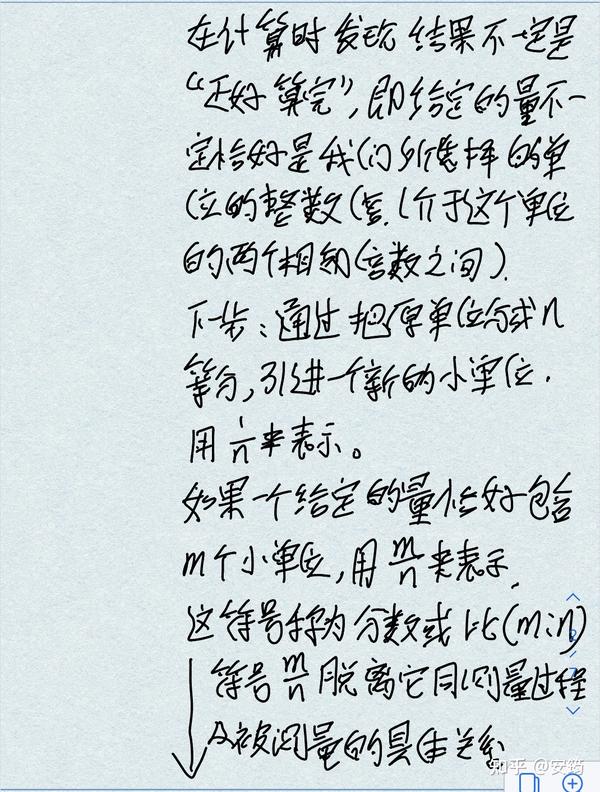 在计算时发现结果不一定是
“正好算完”,即给定的量不一
定恰好是我们所选择的单
位的整数倍.(介于这个单位
的两个相邻倍数之间).
下一步:通过把原单位分成n
等分,引进一个新的小单位.
用1/n来表示。
如果一个给定的量恰好包含
m个小单位,用m/n来表示,
这符号称为分数或比(m:n)
符号m/n脱离它同测量过程
及被测量的具体关系
知乎 @安筠